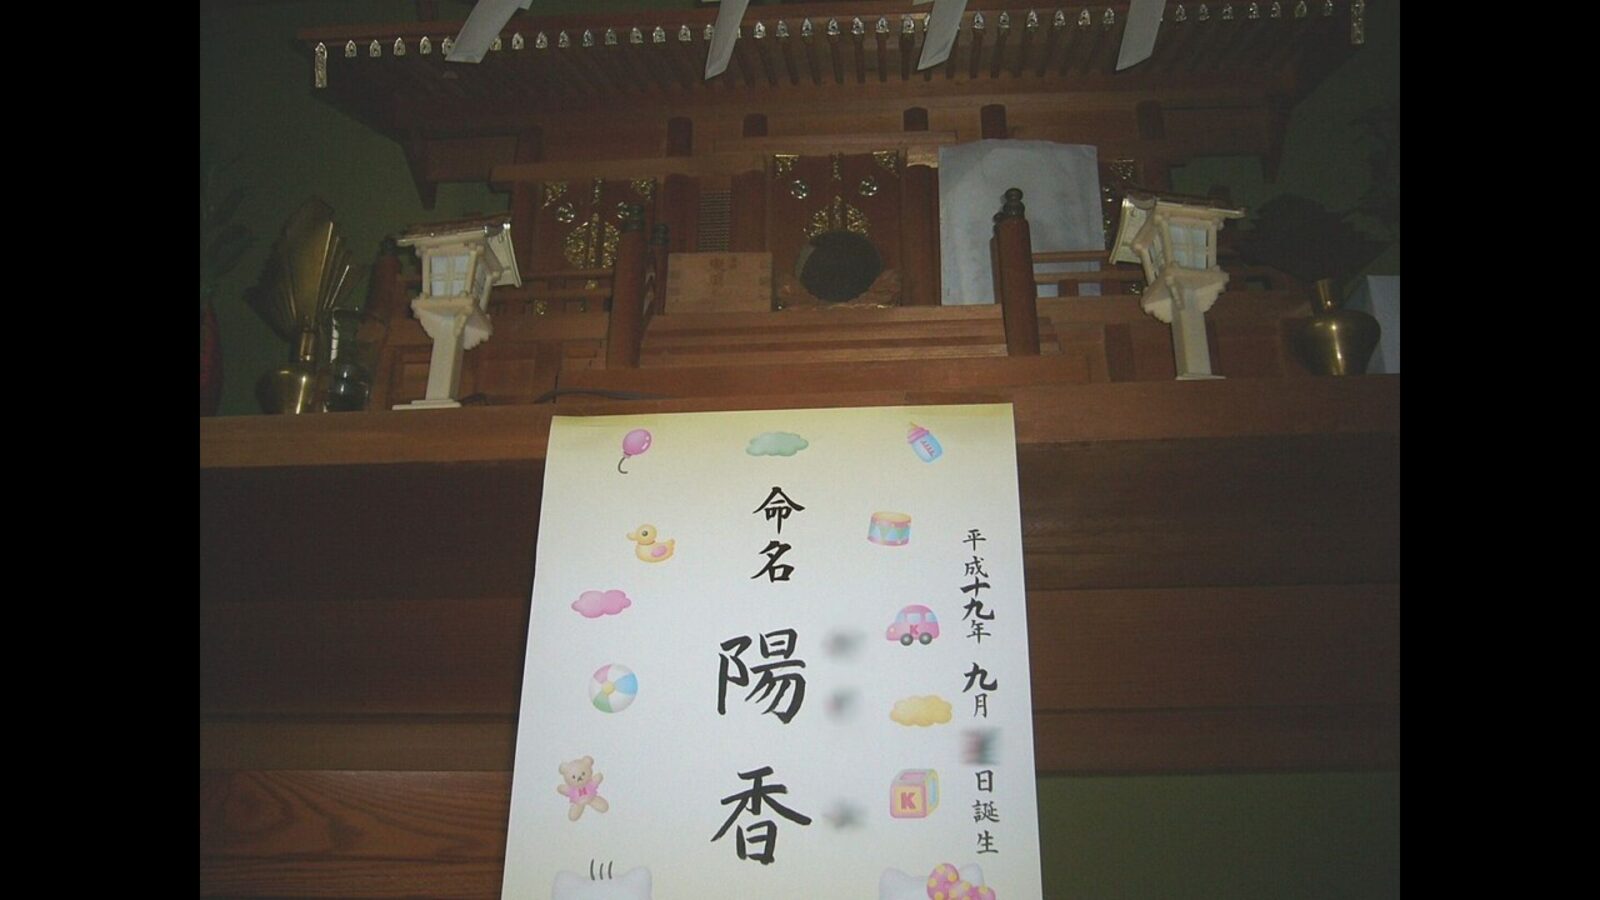 平成十九年 九月 日誕生
命名
陽香
K
K